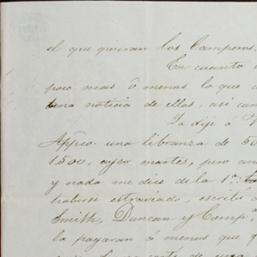 el que quieran los Camperos
En cuanto
poco mas ó menos lo que
tena noticia de ellas, asi
La dije á
Appco una libranza de
1500, ayer martes, pero
y nada me dices de la 1ª.
haberse estraviado, escribo á
Smith, Duncan y Comp.
la pagaran á menos que